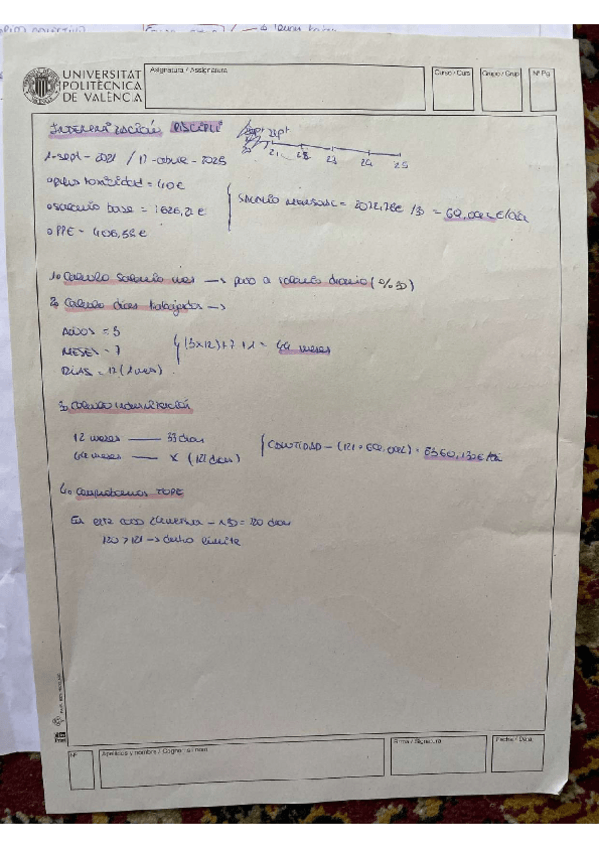 UNIVERSITAT
POLITÈCNICA
DE VALÈNCIA
Asignatura / Assignatura
Curso / Curs
Grupo / Grup
Nº Pg
INDEMNIZACIÓN DISCIPLI
21 22 23 24 25
1-sept-2021 / 17-abril-2025
plus toxicidad = 40€
salario base = 1626,2€
PPE = 406,56€
SALARIO MENSUAL = 2072,78€ /30 = 69,092€/día
1. Calculo salario mes → paso a salario diario (%30)
2. Calculo días trabajados →
AÑOS = 3
MESES = 7
DÍAS = 17 (1 mes)
(3x12)+7+1 = 44 meses
3. Calculo indemnización
12 meses — 33 días
44 meses — x (121 días)
CANTIDAD - (121 · 69,092) = 8360,132€
4. Comprobamos TOPE
En este caso
= 720 días
720 > 121 → dentro límite
Nº
Apellidos y nombre / Cognoms i nom
Firma / Signatura
Fecha / Data